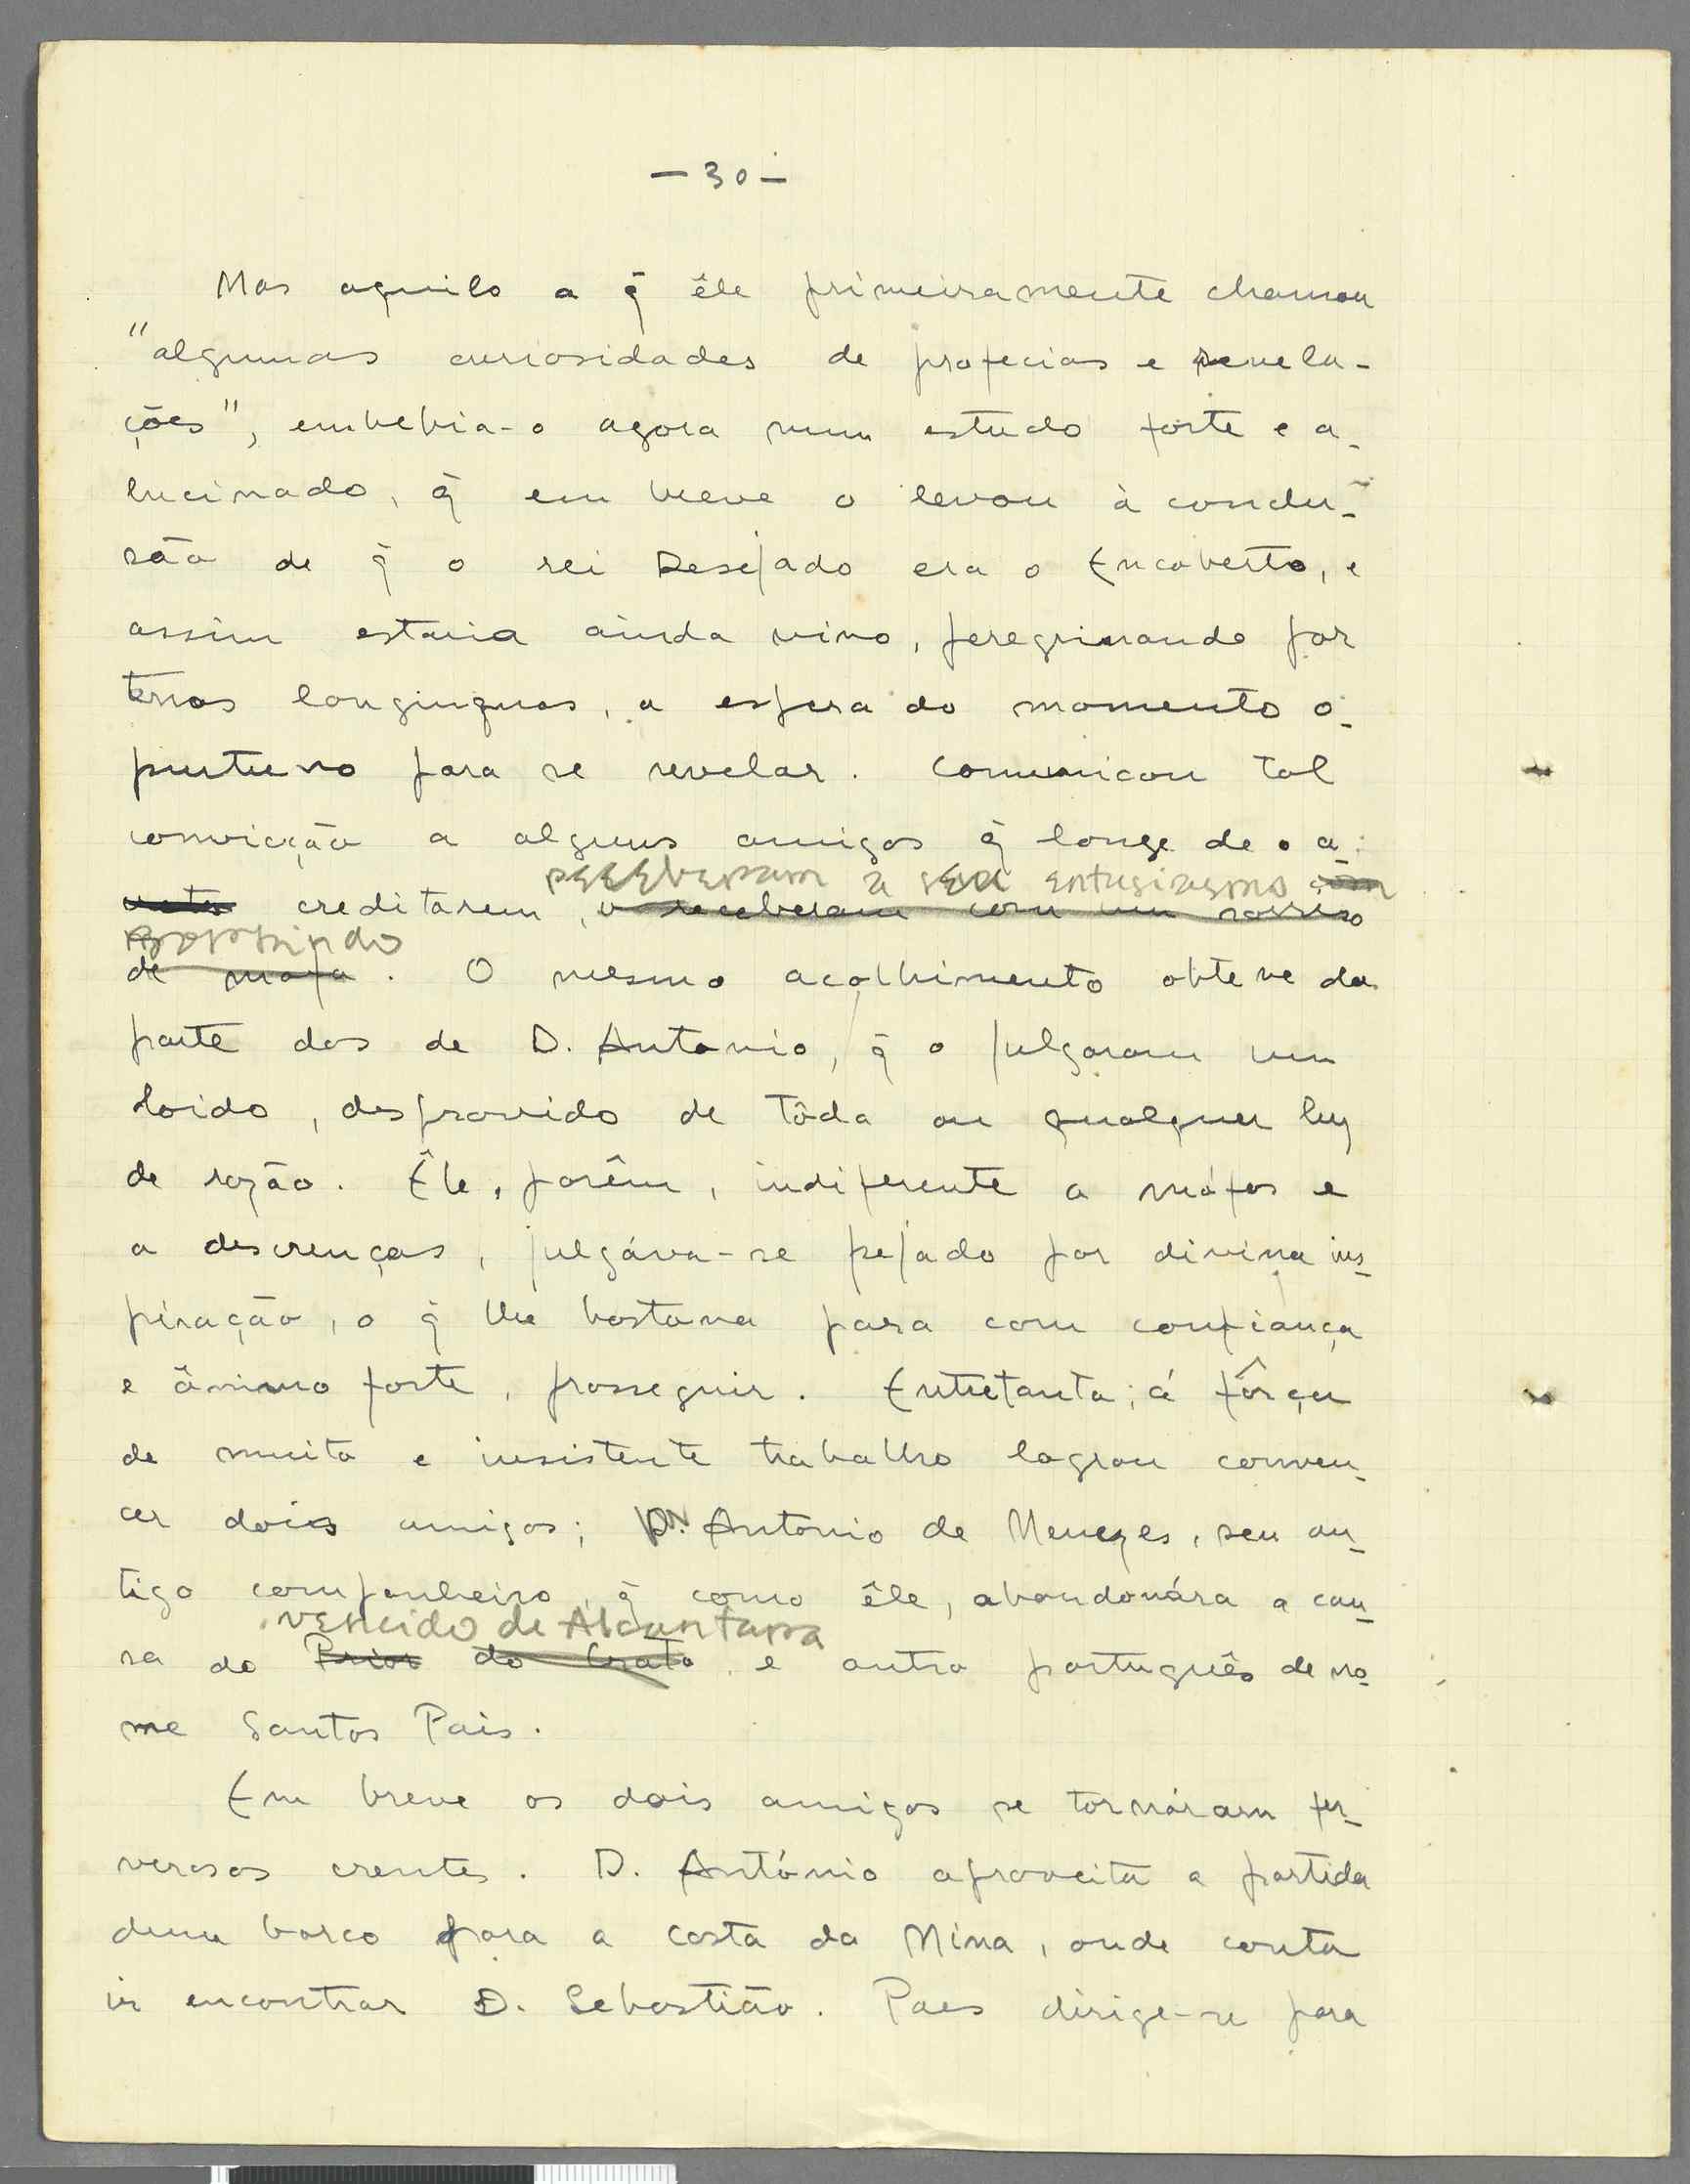 — 30 —
Mas aquilo a q̃ êle primeiramente chamou
"algumas curiosidades de profecias e revela-
ções", embebia-o agora num estudo forte e a-
lucinado, q̃ em breve o levou à conclu-
são de q̃ o rei Desejado era o Encoberto, e
assim estaria ainda vivo, peregrinando por
terras longinquas, a espera do momento o-
purtuno para se revelar. Comunicou tal
convicção a alguns amigos q̃ longe de o a-
receberam a seu entusiasmo com
creditarem, o receberam com um sorriso
sorrindo
de mofa. O mesmo acolhimento obteve da
parte dos de D. Antonio, q̃ o julgaram um
doido, desprovido de tôda ou qualquer luz
de razão. Êle, porêm, indiferente a mófas e
a descrenças, julgáva-se pejado por divina ins-
piração, o q̃ lhe bastava para com confiança
e ânimo forte, prosseguir. Entretanto, á fôrça
de muito e insistente trabalho logrou conven-
cer dois amigos; D. Antonio de Menezes, seu an-
tigo companheiro q̃ como êle, abandonára a cau-
vencido de Alcantara
sa do Prior do Crato, e outro português de no-
me Santos Pais.
Em breve os dois amigos se tornáram fer-
verosos crentes. D. António aproveita a partida
dum barco para a costa da Mina, onde conta
ir encontrar D. Sebastião. Paes dirige-se para